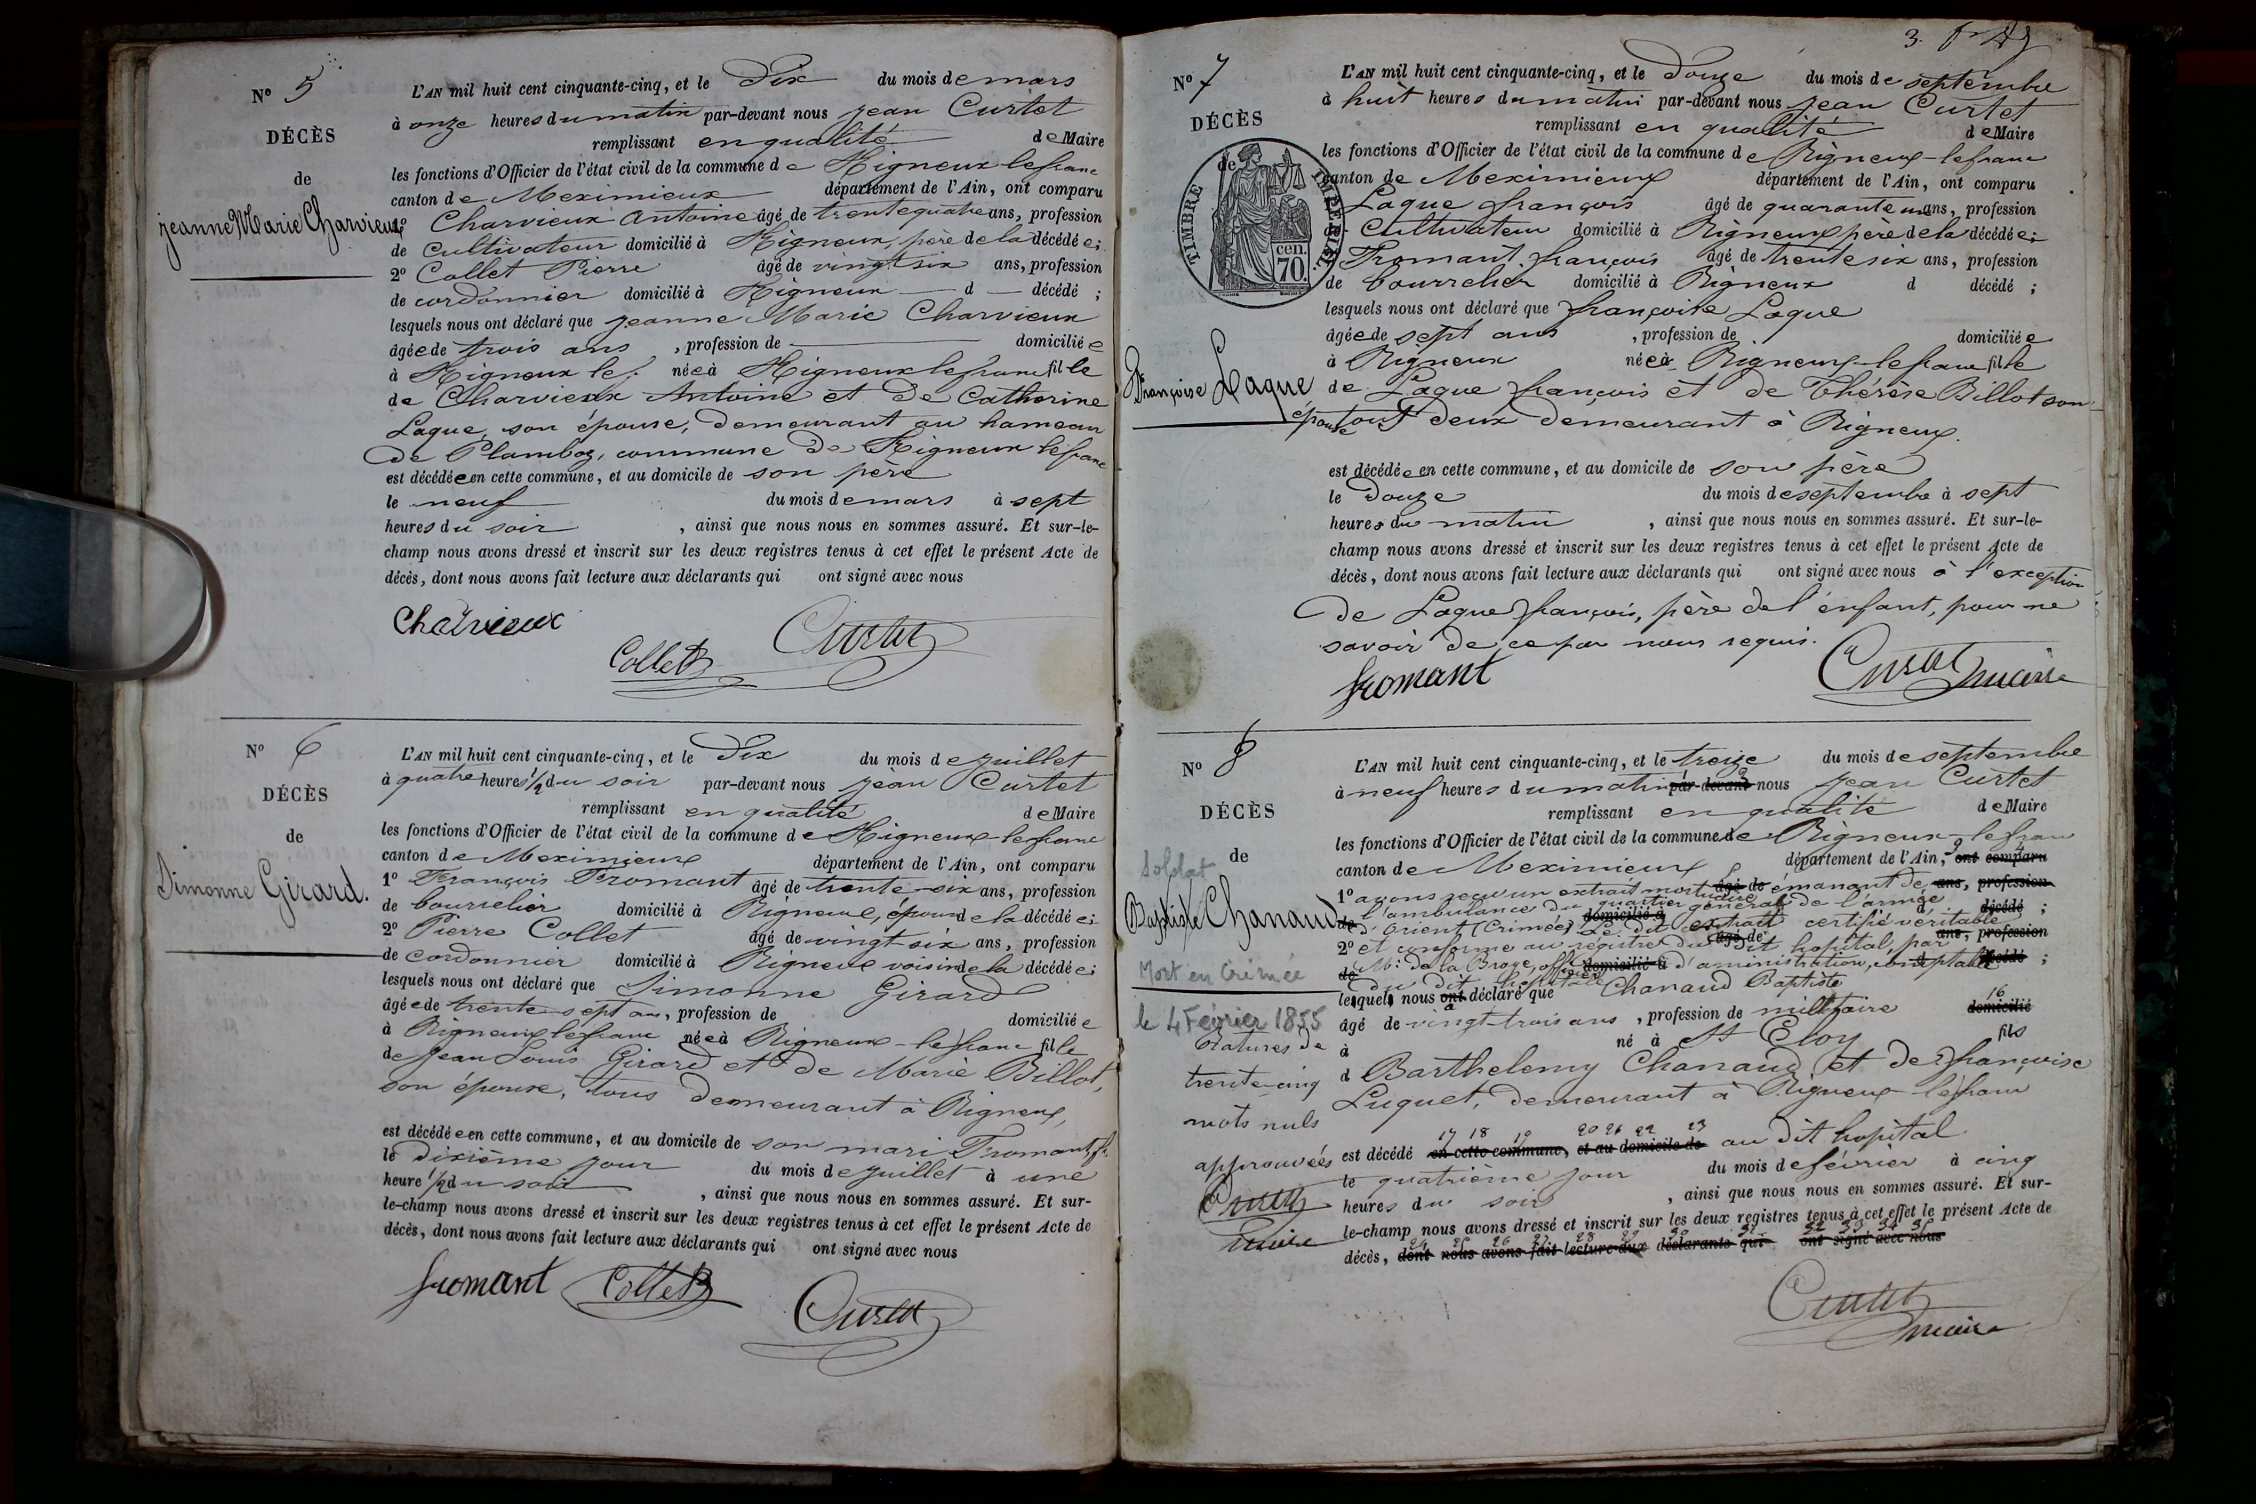 N° 5
DÉCÈS
de
jeanne Marie Charvieux
L'AN mil huit cent cinquante-cinq, et le Dix du mois de mars
à onze heures du matin par-devant nous jean Curtet
remplissant en qualité de Maire
les fonctions d'Officier de l'état civil de la commune de Rigneux lefranc
canton de Meximieux département de l'Ain, ont comparu
1° Charvieux Antoine âgé de trentequatre ans, profession
de Cultivateur domicilié à Rigneux, père de la décédée;
2° Collet Pierre âgé de vingt six ans, profession
de cordonnier domicilié à Rigneux d décédé ;
lesquels nous ont déclaré que jeanne Marie Charvieux
âgée de trois ans , profession de domiciliée
à Rigneux lef. née à Rigneux lefranc fille
de Charvieux Antoine et de Catherine
Laque, son épouse, demeurant au hameau
de Plamboz, commune de Rigneux lefranc
est décédée en cette commune, et au domicile de son père
le neuf du mois de mars à sept
heures du soir , ainsi que nous nous en sommes assuré. Et sur-le-
champ nous avons dressé et inscrit sur les deux registres tenus à cet effet le présent Acte de
décès, dont nous avons fait lecture aux déclarants qui ont signé avec nous
Charvieux
Collet
Curtet
N° 6
DÉCÈS
de
Simonne Girard.
L'AN mil huit cent cinquante-cinq, et le Dix du mois de juillet
à quatre heures 1/2 du soir par-devant nous jean Curtet
remplissant en qualité de Maire
les fonctions d'Officier de l'état civil de la commune de Rigneux-lefranc
canton de Meximieux département de l'Ain, ont comparu
1° François Fromant âgé de trente-six ans, profession
de bourrelier domicilié à Rigneux, époux de la décédée;
2° Pierre Collet âgé de vingt six ans, profession
de cordonnier domicilié à Rigneux voisin de la décédée;
lesquels nous ont déclaré que Simonne Girard
âgée de trente-sept ans, profession de domiciliée
à Rigneux lefranc née à Rigneux-lefranc fille
de jean Louis Girard et de Marie Billot,
son épouse, tous demeurant à Rigneux,
est décédée en cette commune, et au domicile de son mari Fromant f.
le dixième jour du mois de juillet à une
heure 1/2 du soir , ainsi que nous nous en sommes assuré. Et sur-
le-champ nous avons dressé et inscrit sur les deux registres tenus à cet effet le présent Acte de
décès, dont nous avons fait lecture aux déclarants qui ont signé avec nous
fromant Collet
Curtet
3.
N° 7
DÉCÈS
de
TIMBRE IMPERIAL
cen.
70.
Françoise Laque
L'AN mil huit cent cinquante-cinq, et le Douze du mois de septembre
à huit heures du matin par-devant nous jean Curtet
remplissant en qualité de Maire
les fonctions d'Officier de l'état civil de la commune de Rigneux-lefranc
canton de Meximieux département de l'Ain, ont comparu
Laque françois âgé de quarante un ans, profession
Cultivateur domicilié à Rigneux père de la décédée;
Fromant françois âgé de trente six ans, profession
de bourrelier domicilié à Rigneux d décédé ;
lesquels nous ont déclaré que françoise Laque
âgée de sept ans , profession de domiciliée
à Rigneux née à Rigneux-lefranc fille
de Laque françois et de Thérèse Billot son
épouse tous deux demeurant à Rigneux.
est décédée en cette commune, et au domicile de son père
le Douze du mois de septembre à sept
heures du matin , ainsi que nous nous en sommes assuré. Et sur-le-
champ nous avons dressé et inscrit sur les deux registres tenus à cet effet le présent Acte de
décès, dont nous avons fait lecture aux déclarants qui ont signé avec nous à l'exception
de Laque françois, père de l'enfant, pour ne
savoir de ce par nous requis.
fromant
Curtet maire
N° 8
DÉCÈS
de
Soldat
Baptiste Chanaud
Mort en Crimée
le 4 Février 1855
Ratures de
trente-cinq
mots nuls
approuvées
Curtet
maire
L'AN mil huit cent cinquante-cinq, et le treize du mois de septembre
à neuf heures du matin par-devant nous jean Curtet
remplissant en qualité de Maire
les fonctions d'Officier de l'état civil de la commune de Rigneux-lefranc
canton de Meximieux département de l'Ain, ont comparu
1° avons reçu un extrait mortuaire âgé de émanant de ans, profession
l'ambulance du quartier général de l'armée
de d'Orient (Crimée) domicilié à Le dit extrait certifié véritable d décédé ;
2° et conforme au registre du dit hopital, par âgé de ans, profession
de Mr. de la Broye, officier domicilié à d'aministration, comptable décédé ;
du dit hopital
lesquels nous ont a déclaré que Chanaud Baptiste
âgé de vingt-trois ans , profession de militaire domicilié 16
à né à St Eloy fils
d Barthelemy Chanaud et de françoise
Luquet, demeurant à Rigneux-lefranc
17 18 19 20 21 22 23
est décédé en cette commune, et au domicile de au dit hopital
le quatrième jour du mois de février à cinq
heures du soir , ainsi que nous nous en sommes assuré. Et sur-
le-champ nous avons dressé et inscrit sur les deux registres tenus à cet effet le présent Acte de
24 25 26 27 28 29 30 31 32 33 34 35
décès, dont nous avons fait lecture aux déclarants qui ont signé avec nous
Curtet
maire